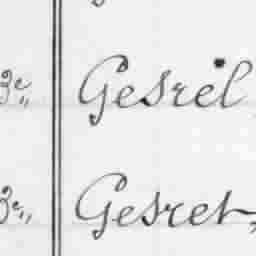 3e,, Gesrel
3e,, Gesret,